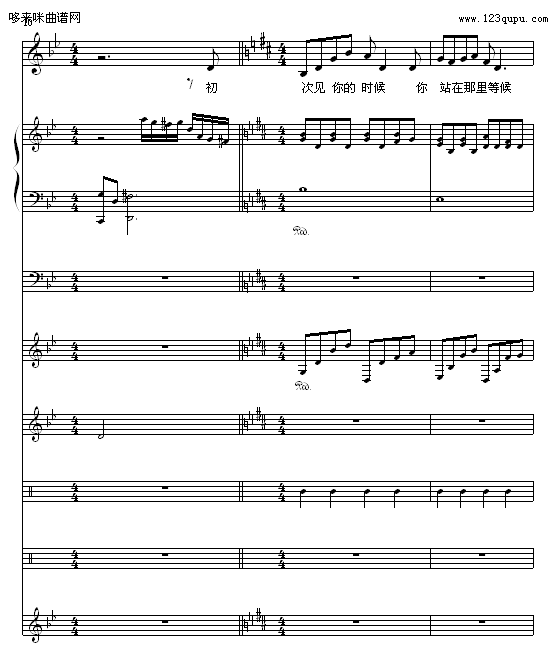 哆来咪曲谱网
www.123qupu.com
初 次见 你的 时候 你 站在那里等候